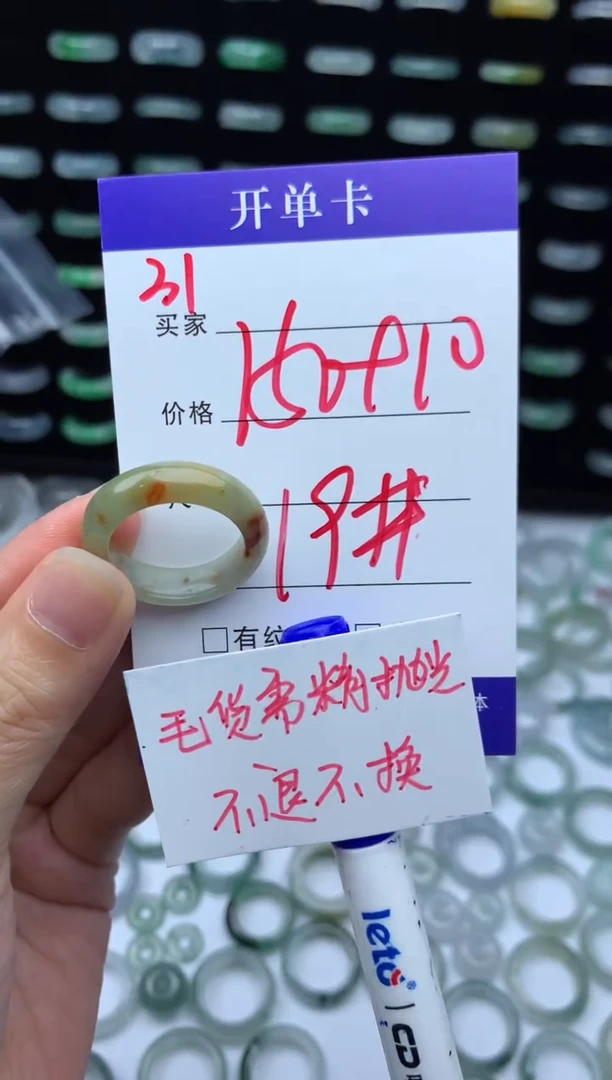 开单卡
31
买家
价格 150+10
19#
□有纹
毛货需精抛光
不退不换
本
leto®
CD